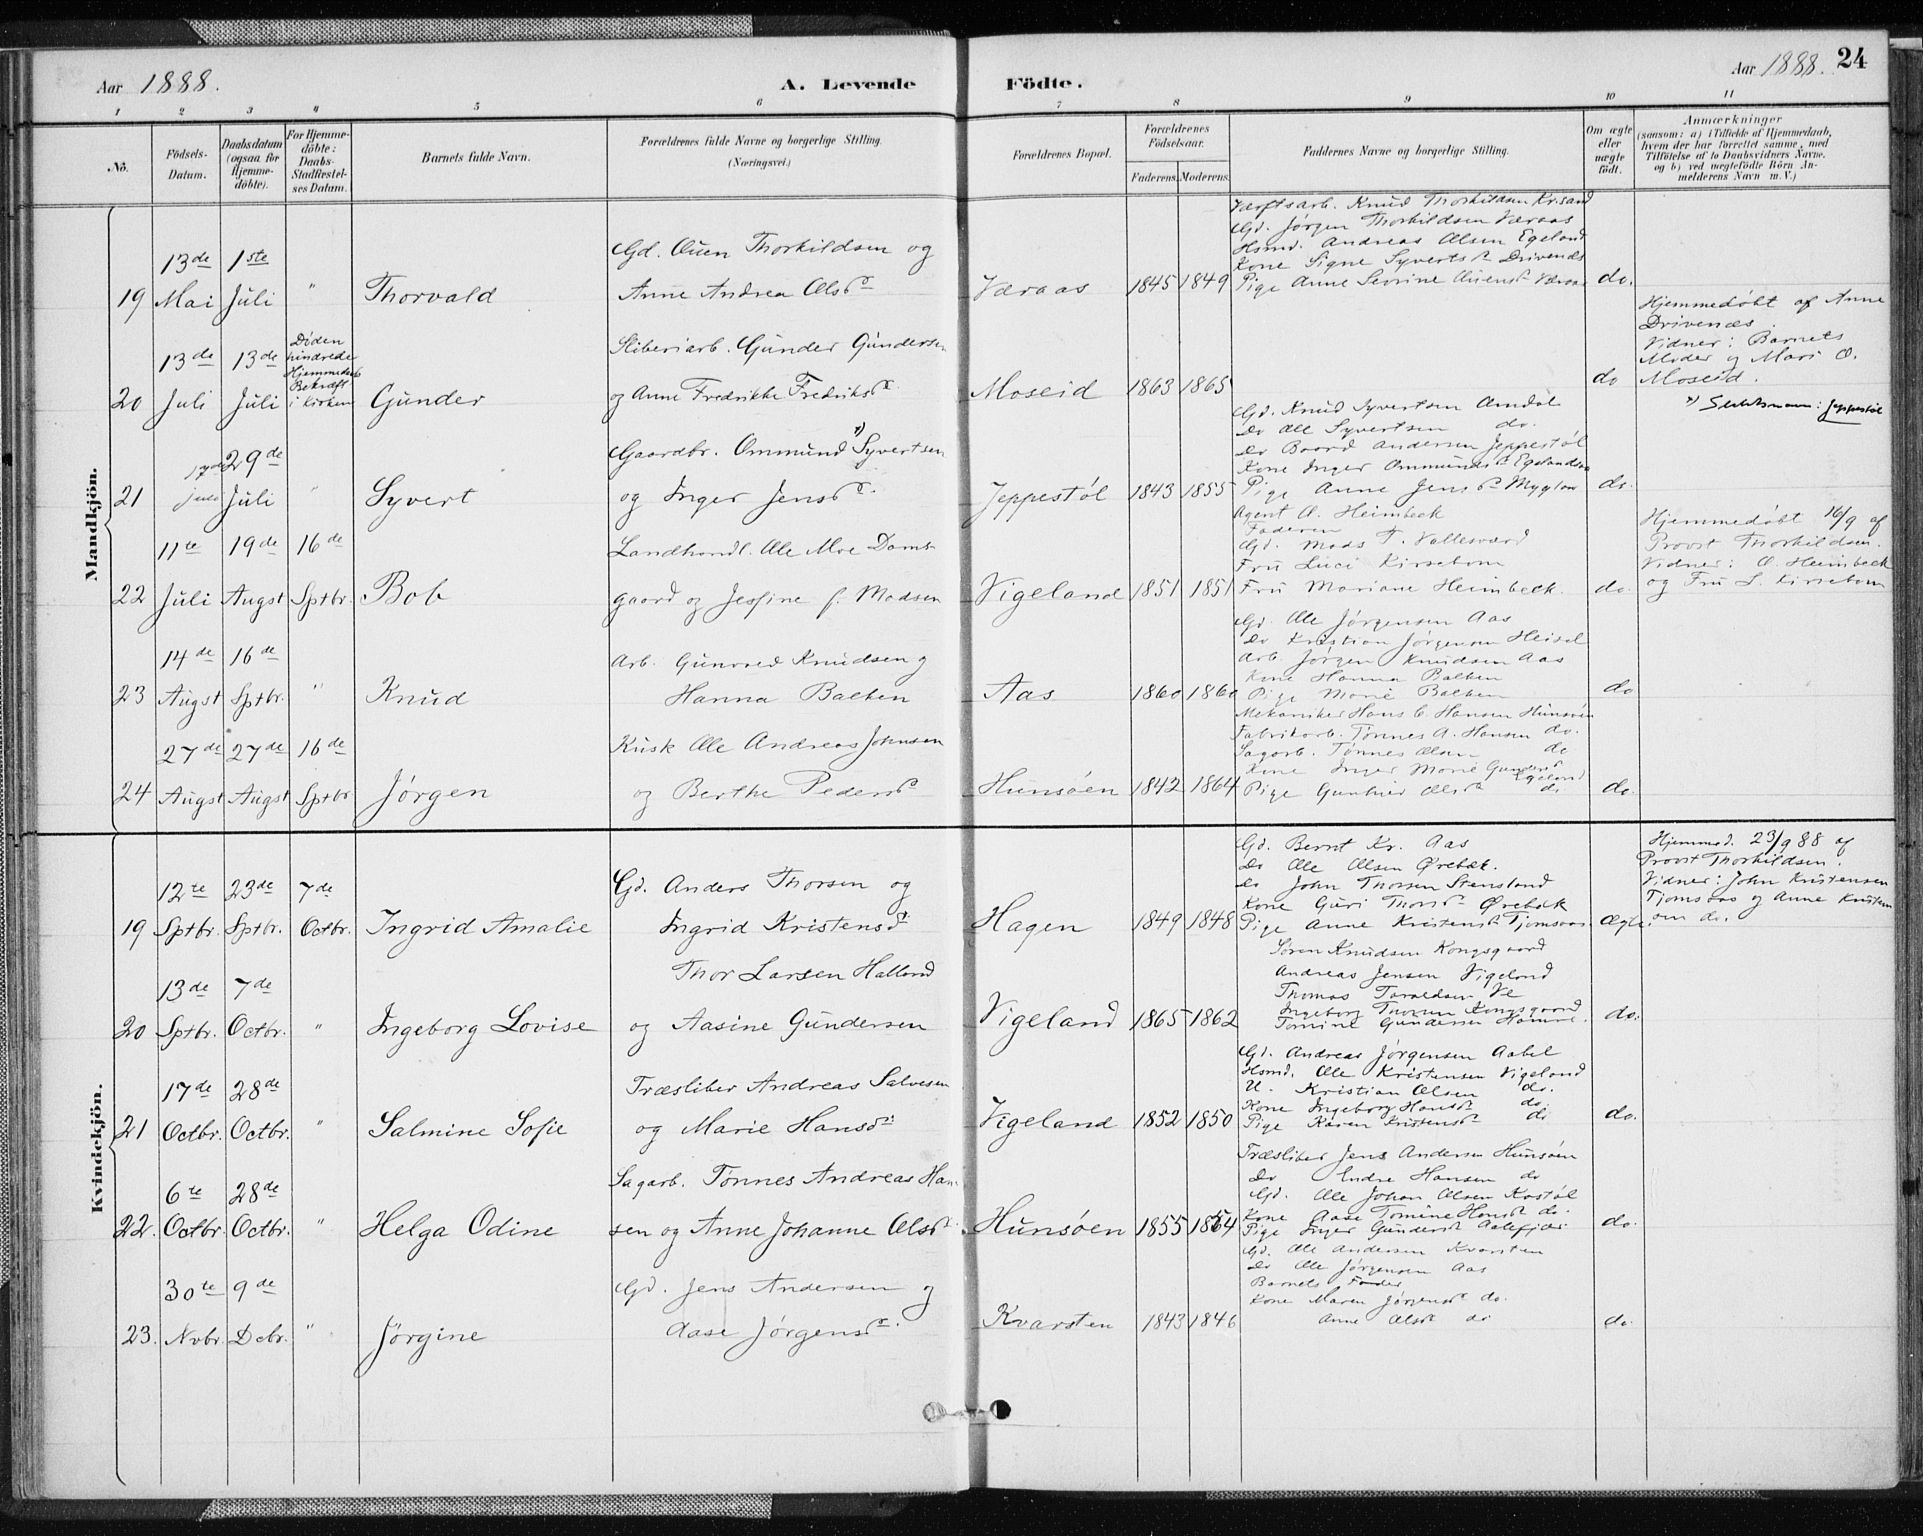 Aar 1888. A. Levende Födte. Aar 1888. 24
1 2 3 4 5 6 7 8 9 10 11
No.
Födsels-Datum.
Daabsdatum (ogsaa for Hjemme-döbte).
For Hjemme-döbte: Daabs-Stadfæstel-ses Datum.
Barnets fulde Navn.
Forældrenes fulde Navne og borgerlige Stilling. (Næringsvei.)
Forældrenes Bopæl.
Forældrenes Födselsaar.
Faderens. Moderens.
Faddernes Navne og borgerlige Stilling.
Om ægte eller uægte födt.
Anmærkninger
(saasom: a) i Tilfælde af Hjemmedaab, hvem der har forrettet samme, med Tilföielse af to Daabsvidners Navne, og b) ved uægtefödte Börn An-melderens Navn m. V.)
Mandkjön.
19 13de Mai 1ste Juli " Thorvald
Gd. Ouen Thorkildsen og
Anne Andrea Olsd.
Væraas 1845 1849
Værftsarb. Knud Thorkildsen Kr.sand
Gd. Jørgen Thorkildsen Væraas
Hsmd. Andreas Olsen Egeland
Kone Signe Syvertsd. Drivenes
Pige Anne Sevrine Ouensd. Væraas
do.
20 13de Juli 13de Juli
Døden
hindrede
Hjemmedaab
Bekræft
i Kirken
Gunder
Sliberiarb. Gunder Gundersen
og Anne Fredrikke Fredriksd.
Moseid 1863 1865 do
Hjemmedøbt af Anne
Drivenæs.
Vidner: Barnets
Moder og Mari O.
Moseid.
21 17de Juli 29de Juli " Syvert
Gaardbr. Ommund x) Syvertsen
og Inger Jensd.
Jeppestøl 1843 1855
Gd. Knud Syvertsen Omdal
Do Ole Syvertsen do.
Do Baard Andersen Jeppestøl
Kone Inger Ommundsd. Egelandsaa
Pige Anne Jensd.
do.
x) Slektsnavn: Jeppestøl
22 11te Juli 19de Augst 16de Sptbr. Bob
Landhandl. Ole Moe Dams-
gaard og Jesfine f. Madsen
Vigeland 1851 1851
Agent O. Heimbeck
Faderen
Gd. Mads T. Vallesværd
Fru Luci Kirsebom
Fru Mariane Heimbeck.
do.
Hjemmedøbt 16/9 af
Provst Thorkildsen.
Vidner: O. Heimbeck
og Fru L. Kirsebom
23 14de Augst 16de Sptbr. " Knud
Arb. Gunvald Knudsen og
Hanna Balken
Aas 1860 1860
Gd. Ole Jørgensen Aas
Do Kristian Jørgensen Heisel
Arb. Jørgen Knudsen Aas
Kone Hanna Balken
Pige Marie Balken
do
24 27de Augst 27de Augst 16de Sptbr Jørgen
Kusk Ole Andreas Johnsen
og Berthe Pedersd.
Hunsøen 1842 1864
Mekaniker Hans C. Hansen Hunsøen
Fabrikarb. Tønnes A. Hansen do.
Sagarb. Tønnes Olsen do
Kone Inger Marie Gundersd. Egeland
Pige Gunhild Olsd. do
do.
Kvindekjön.
19 12te Sptbr. 23de Sptbr. 7de Octbr. Ingrid Amalie
Gd. Anders Thorsen og
Ingrid Kristensd.
Hagen 1849 1848
Gd. Bernt Kr. Aas
Do Ole Olsen Ørebæk.
Do John Thorsen Stensland
Kone Guri Thorsd. Ørebæk
Pige Anne Kristensd. Tjomsaas.
Ægte.
Hjemmed. 23/9 88 af
Provst Thorkildsen.
Vidner: John Kristensen
Tjomsaas og Anne Kristen
do.
20 13de Sptbr. 7de Octbr. " Ingeborg Lovise
Thor Larsen Halland
og Aasine Gundersen
Vigeland 1865 1862
Søren Knudsen Kongsgaard
Andreas Jensen Vigeland
Thomas Taraldsen Ve
Ingeborg Thorsen Kongsgaard
Tomine Gundersen Homme.
do.
21 17de Octbr. 28de Octbr. " Salmine Sofie
Træsliber Andreas Salvesen
og Marie Hansd.
Vigeland 1852 1850
Gd. Andreas Jørgensen Aabel
Hsmd. Ole Kristensen Vigeland
U. Kristian Olsen do.
Kone Ingeborg Hansd. do.
Pige Karen Kristensd. do
do.
22. 6te Octbr. 28de Octbr. " Helga Odine
Sagarb. Tønnes Andreas Han-
sen og Anne Johanne Olsd.
Hunsøen 1855 1854
Træsliber Jens Andersen Hunsøen
Do Andre Hansen do
Gd. Ole Johan Olsen Kostøl
Kone Aase Tomine Hansd. do.
Pige Inger Gundersd. Aalefjær
do.
23. 30te Nvbr. 9de Dcbr. " Jørgine
Gd. Jens Andersen og
Aase Jørgensd.
Kvarsten 1843 1846
Gd. Ole Andersen Kvarsten
Do Ole Jørgensen Aas
Barnets Fader
Kone Maren Jørgensd. do.
Anne Olsd. do
do.